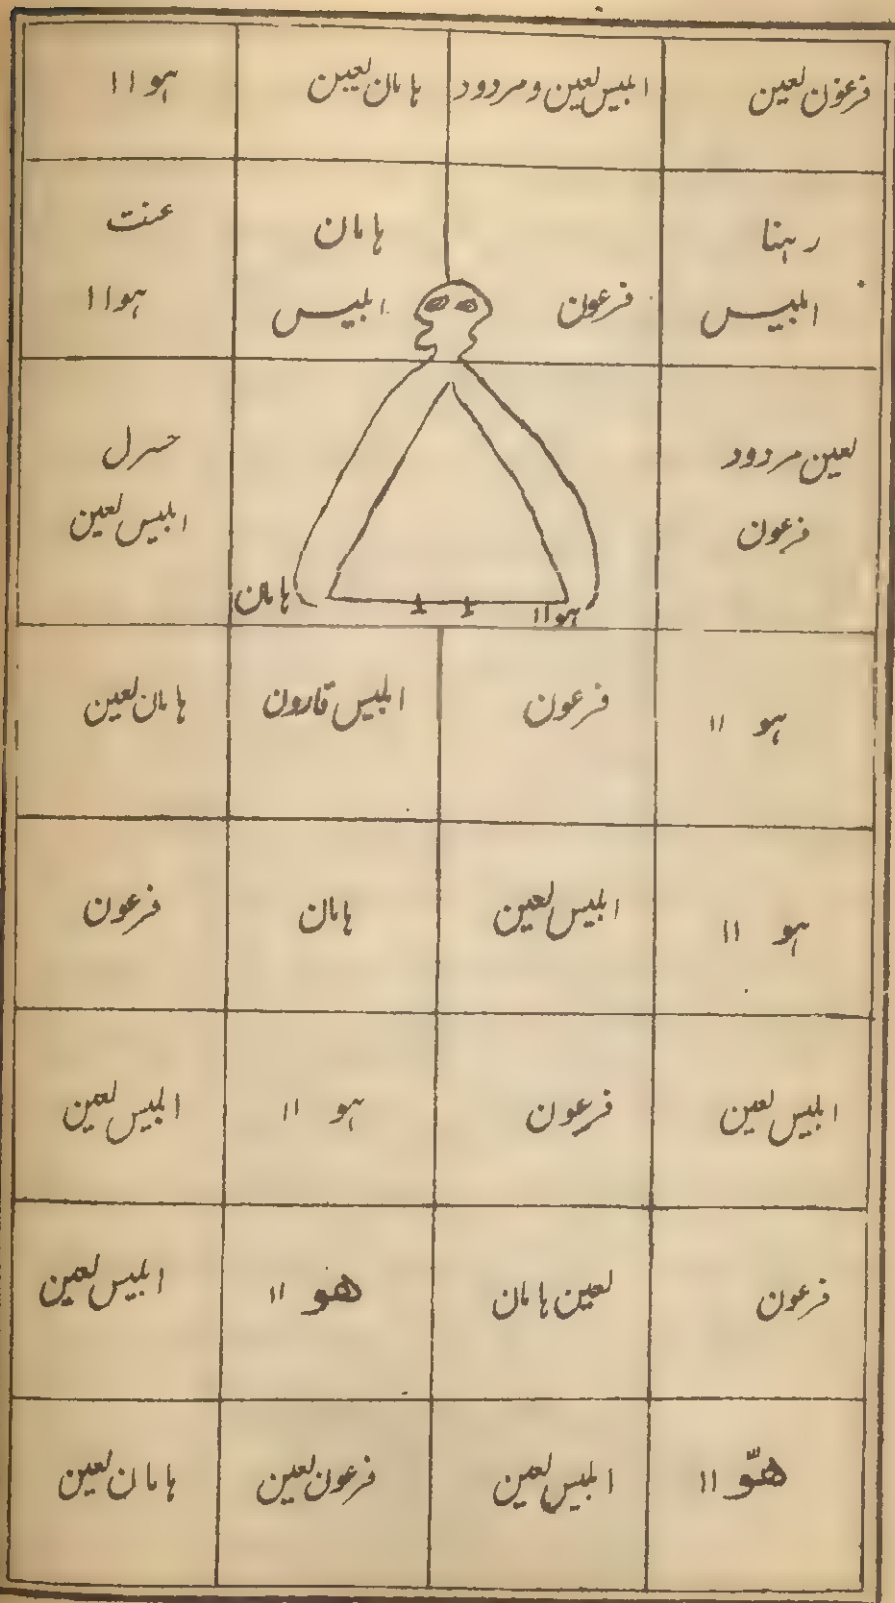 فرعون لعین ابلیس لعین و مردود ہامان لعین ہو ۱۱
رہنا فرعون ہامان عنت
ابلیس ابلیس ہو ۱۱
لعین مردود
فرعون ابلیس لعین
ہو ۱۱ ہامان
ہو ۱۱ فرعون ابلیس قارون ہامان لعین
ہو ۱۱ ابلیس لعین ہامان فرعون
ابلیس لعین فرعون ہو ۱۱ ابلیس لعین
فرعون لعین ہامان ھو ۱۱ ابلیس لعین
ھوّ ۱۱ ابلیس لعین فرعون لعین ہامان لعین